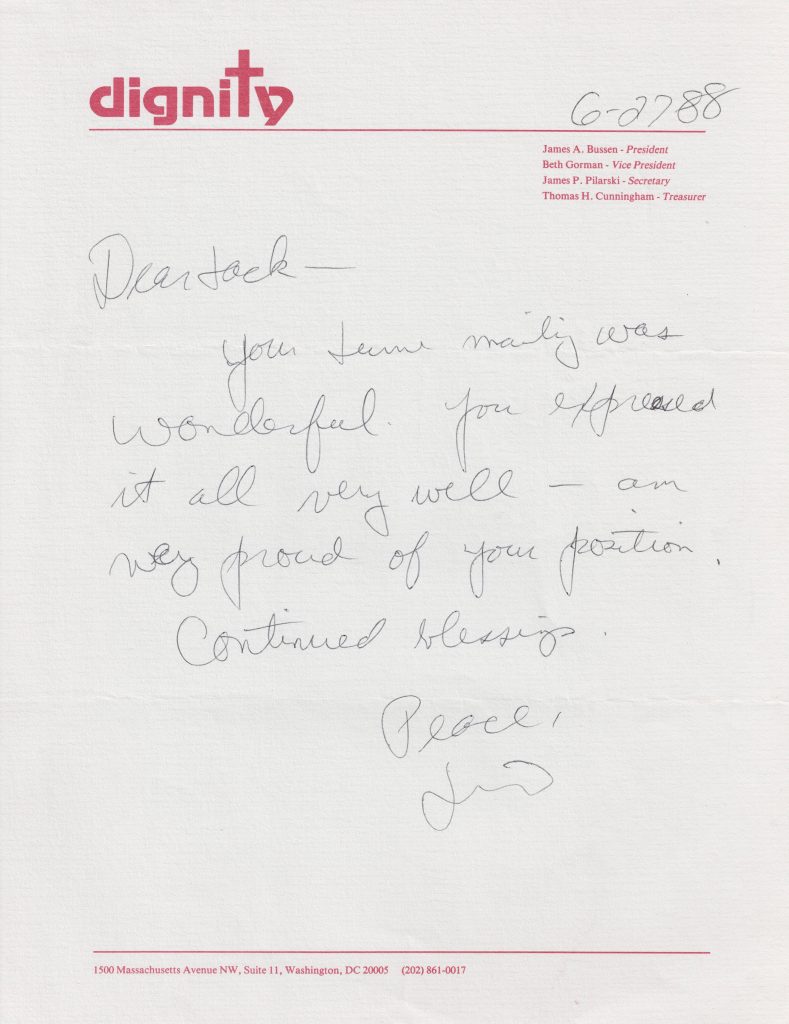 dignity
6-27 88
James A. Bussen - President
Beth Gorman - Vice President
James P. Pilarski - Secretary
Thomas H. Cunningham - Treasurer
Dear Jack —
Your June mailing was
wonderful. You expressed
it all very well — am
very proud of your position.
Continued blessings.
Peace,
Jim
1500 Massachusetts Avenue NW, Suite 11, Washington, DC 20005 (202) 861-0017